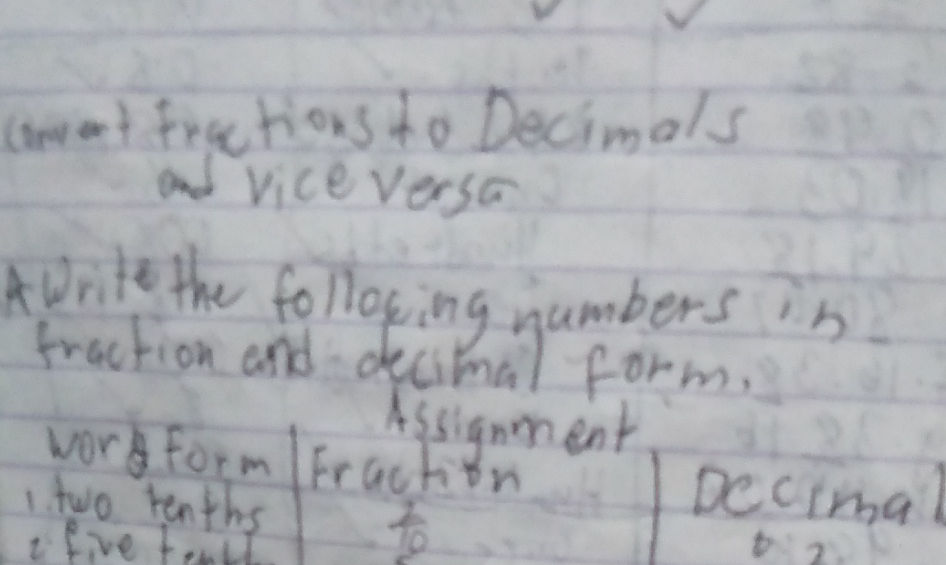 Convert Fractions to Decimals
and vice versa
A Write the following numbers in
fraction and decimal form.
Assignment
Word Form | Fraction | Decimal
1. two tenths
0.2
2 five